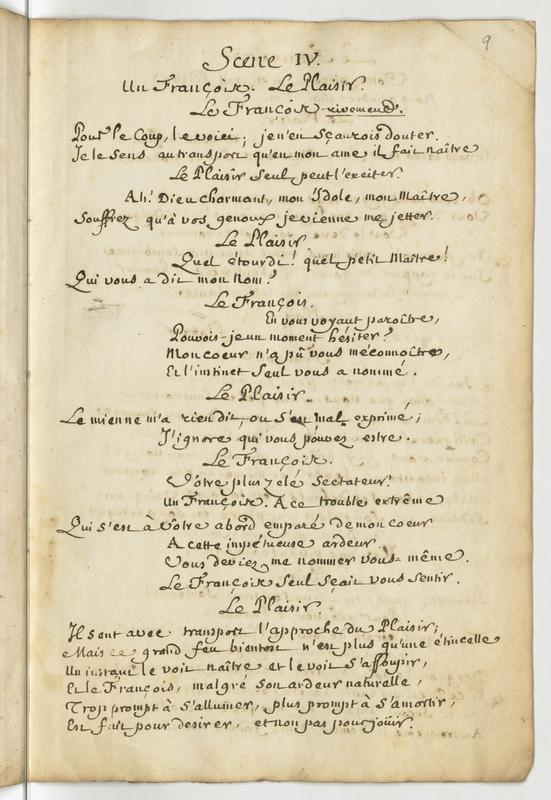 9
Scene IV.
Un François. Le Plaisir.
Le François vivement.
Pour le Coup, le voici; je n'en Sçaurois douter.
Je le Sens au transport qu'en mon ame il fait naître
Le Plaisir Seul peut l'exciter.
Ah! Dieu charmant, mon Idole, mon Maître,
Souffrez qu'à vos genoux je vienne me jetter.
Le Plaisir.
Quel étourdi! quel petit Maître!
Qui vous a dit mon Nom?
Le François.
En vous voyant paroître,
Pouvois-je un moment hésiter?
Mon coeur n'a pû vous méconnoître,
Et l'instinct Seul vous a nommé.
Le Plaisir.
Le mien ne m'a rien dit, ou S'est mal exprimé;
J'ignore qui vous pouvez estre.
Le François.
Vôtre plus zelé Sectateur.
Un François. A ce trouble extrême
Qui S'est à Vôtre abord emparé de mon coeur
A cette impétueuse ardeur
Vous deviez me nommer vous-même.
Le François Seul Sçait vous Sentir.
Le Plaisir.
Il Sent avec transport l'approche du Plaisir;
Mais ce grand feu bientost n'est plus qu'une étincelle
Un instant le voit naître et le voit S'assoupir,
Et le François, malgré Son ardeur naturelle,
Trop prompt à S'allumer, plus prompt à S'amortir,
Est fait pour desirer, et non pas pour joüir.